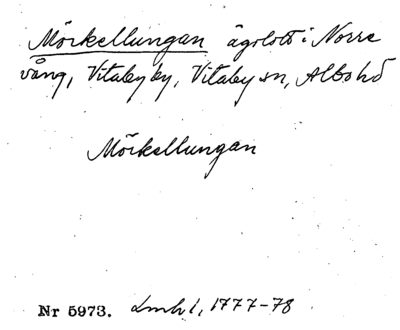 Mörkellungan ägolott i Norre
vång, Vitaby by, Vitaby sn, Albo hd
Mörkellungan
Nr 5973. Lmhl, 1777-78